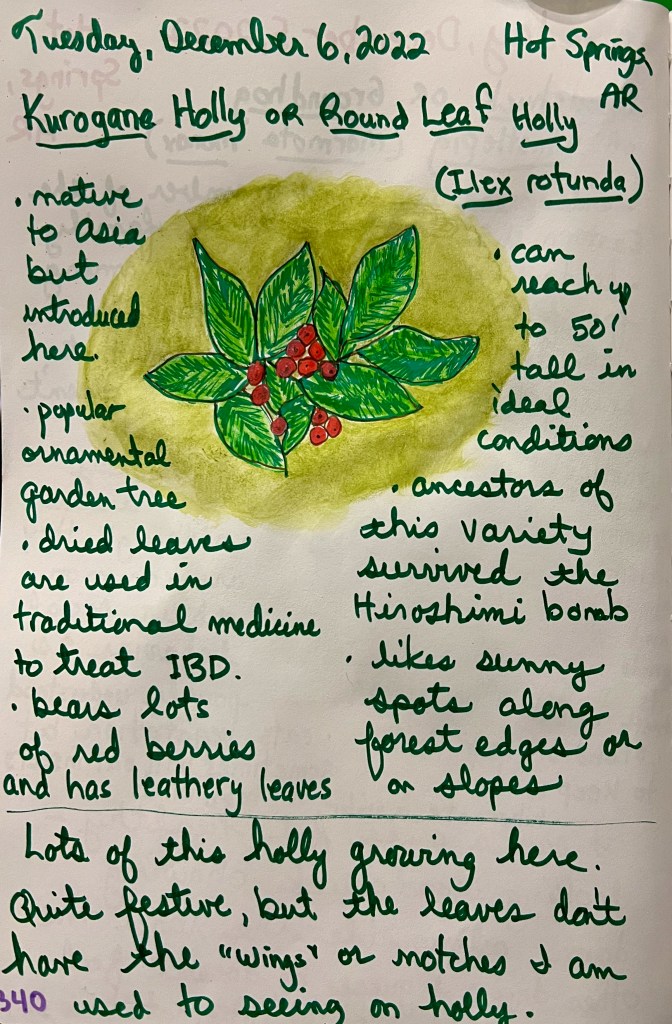 Tuesday, December 6, 2022 Hot Springs,
AR
Kurogane Holly or Round Leaf Holly
(Ilex rotunda)
• native
to Asia
but
introduced
here.
• popular
ornamental
garden tree
• dried leaves
are used in
traditional medicine
to treat IBD.
• bears lots
of red berries
and has leathery leaves
• can
reach up
to 50'
tall in
ideal
conditions
• ancestors of
this variety
survived the
Hiroshimi bomb
• likes sunny
spots along
forest edges or
on slopes
Lots of this holly growing here.
Quite festive, but the leaves don't
have the "wings" or notches I am
340 used to seeing on holly.